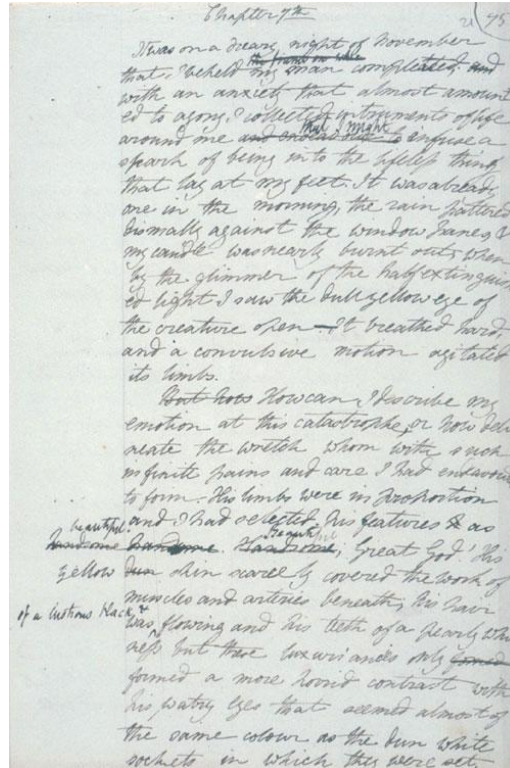 Chapter 7th
75
It was on a dreary night of November
that I beheld the frame on whic my man compleated and
with an anxiety that almost amount
ed to agony I collected instruments of life
around me and endeavour to that I might infuse a
spark of being into the lifeless thing
that lay at my feet. It was already
one in the morning, the rain pattered
dismally against the window panes, &
my candle was nearly burnt out, when
by the glimmer of the half extinguish
ed light I saw the dull yellow eye of
the creature open — It breathed hard,
and a convulsive motion agitated
its limbs.
But how How can I describe my
emotion at this catastrophe, or how deli
neate the wretch whom with such
infinite pains and care I had endeavour
to form. His limbs were in proportion
and I had selected his features as
beautiful handsome handsome. Handsome Beautiful, Great God! His
yellow dun skin scarcely covered the work of
muscles and arteries beneath; his hair
of a lustrous black, &
was flowing and his teeth of a pearly whi
ness but these luxuriancies only formed
formed a more horrid contrast with
his watry eyes that seemed almost of
the same colour as the dun white
sockets in which they were set